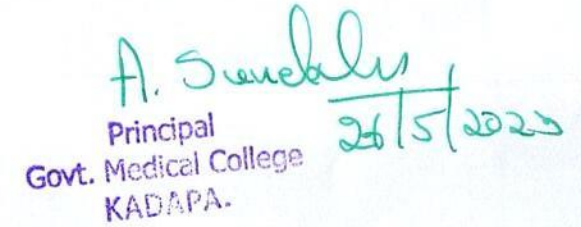 A.
26/5/2023
Principal
Govt. Medical College
KADAPA.